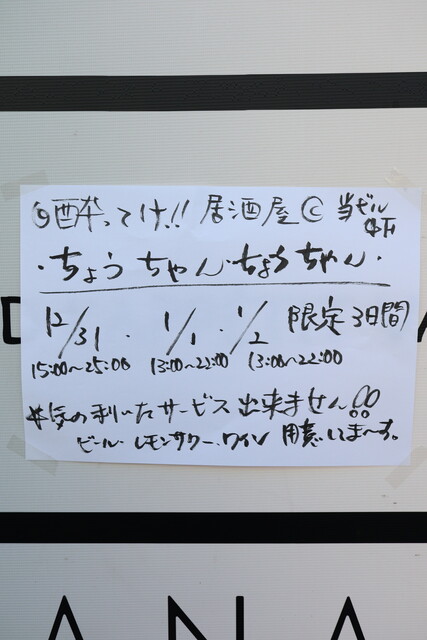 酔ってけ!! 居酒屋 © 当ビル
・ちょうちゃん・ちょうちゃん・
12/31 ・ 1/1 ・ 1/2 限定3日間
15:00~25:00 13:00~22:00 13:00~22:00
気の利いたサービス出来ません!!
ビール・レモンサワー・ワイン 用意してま〜す。
ANA